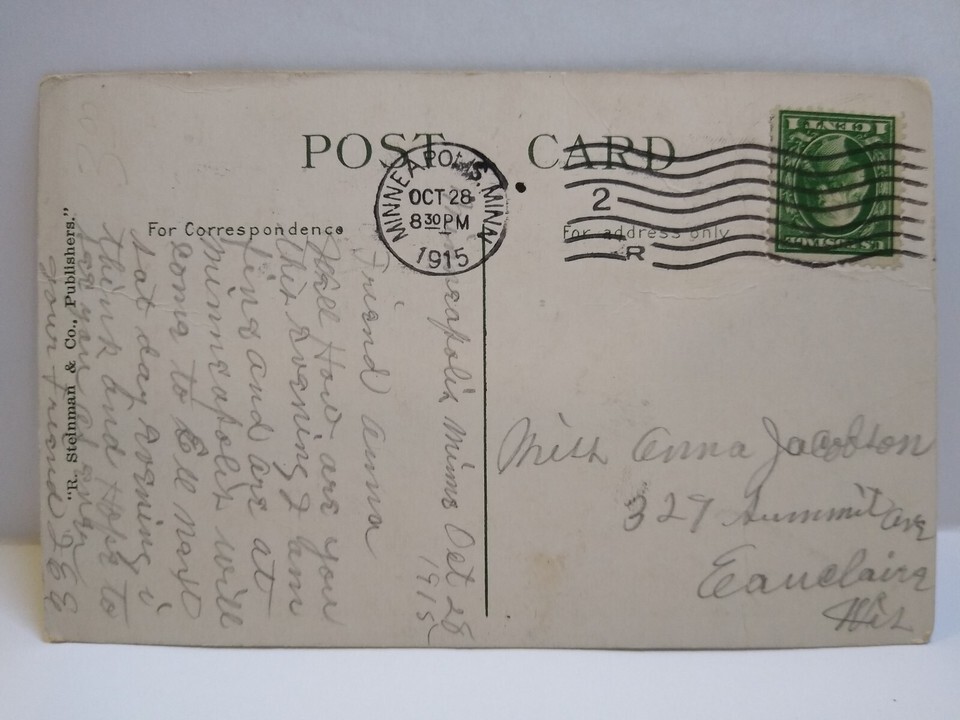 POST CARD
MINNEAPOLIS, MINN.
OCT 28
8 30 PM
1915
2
R
For Correspondence
For address only
"R. Steinman & Co., Publishers."
Oct 28
1915
Friend Anna
Well How are you
this evening I am
fine and are at
minneapolis will
come to E
sat day evening i
think and Hope to
see you
your friend
Miss Anna Jacobson
327 Summit Ave
Eauclaire
Wis